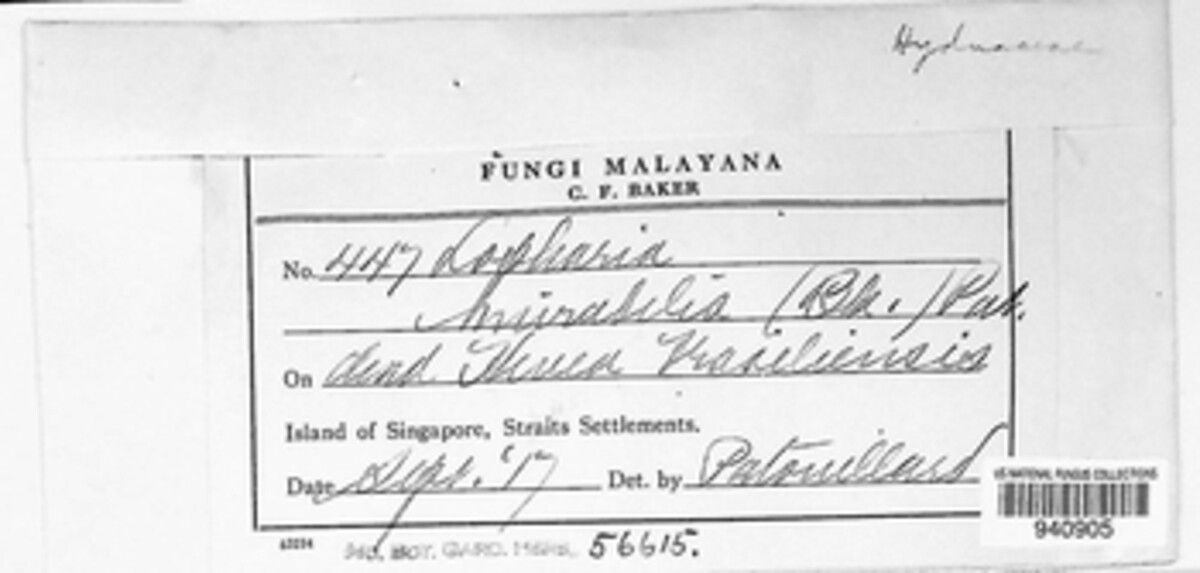 Hydnaceae
FUNGI MALAYANA
C. F. BAKER
No. 447 Lopharia
mirabilis (Bk.) Pat.
On dead Hevea brasiliensis
Island of Singapore, Straits Settlements.
Date Sept. '17 Det. by Patouillard
US NATIONAL FUNGUS COLLECTIONS
940905
MO. BOT. GARD. HERB. 56615.